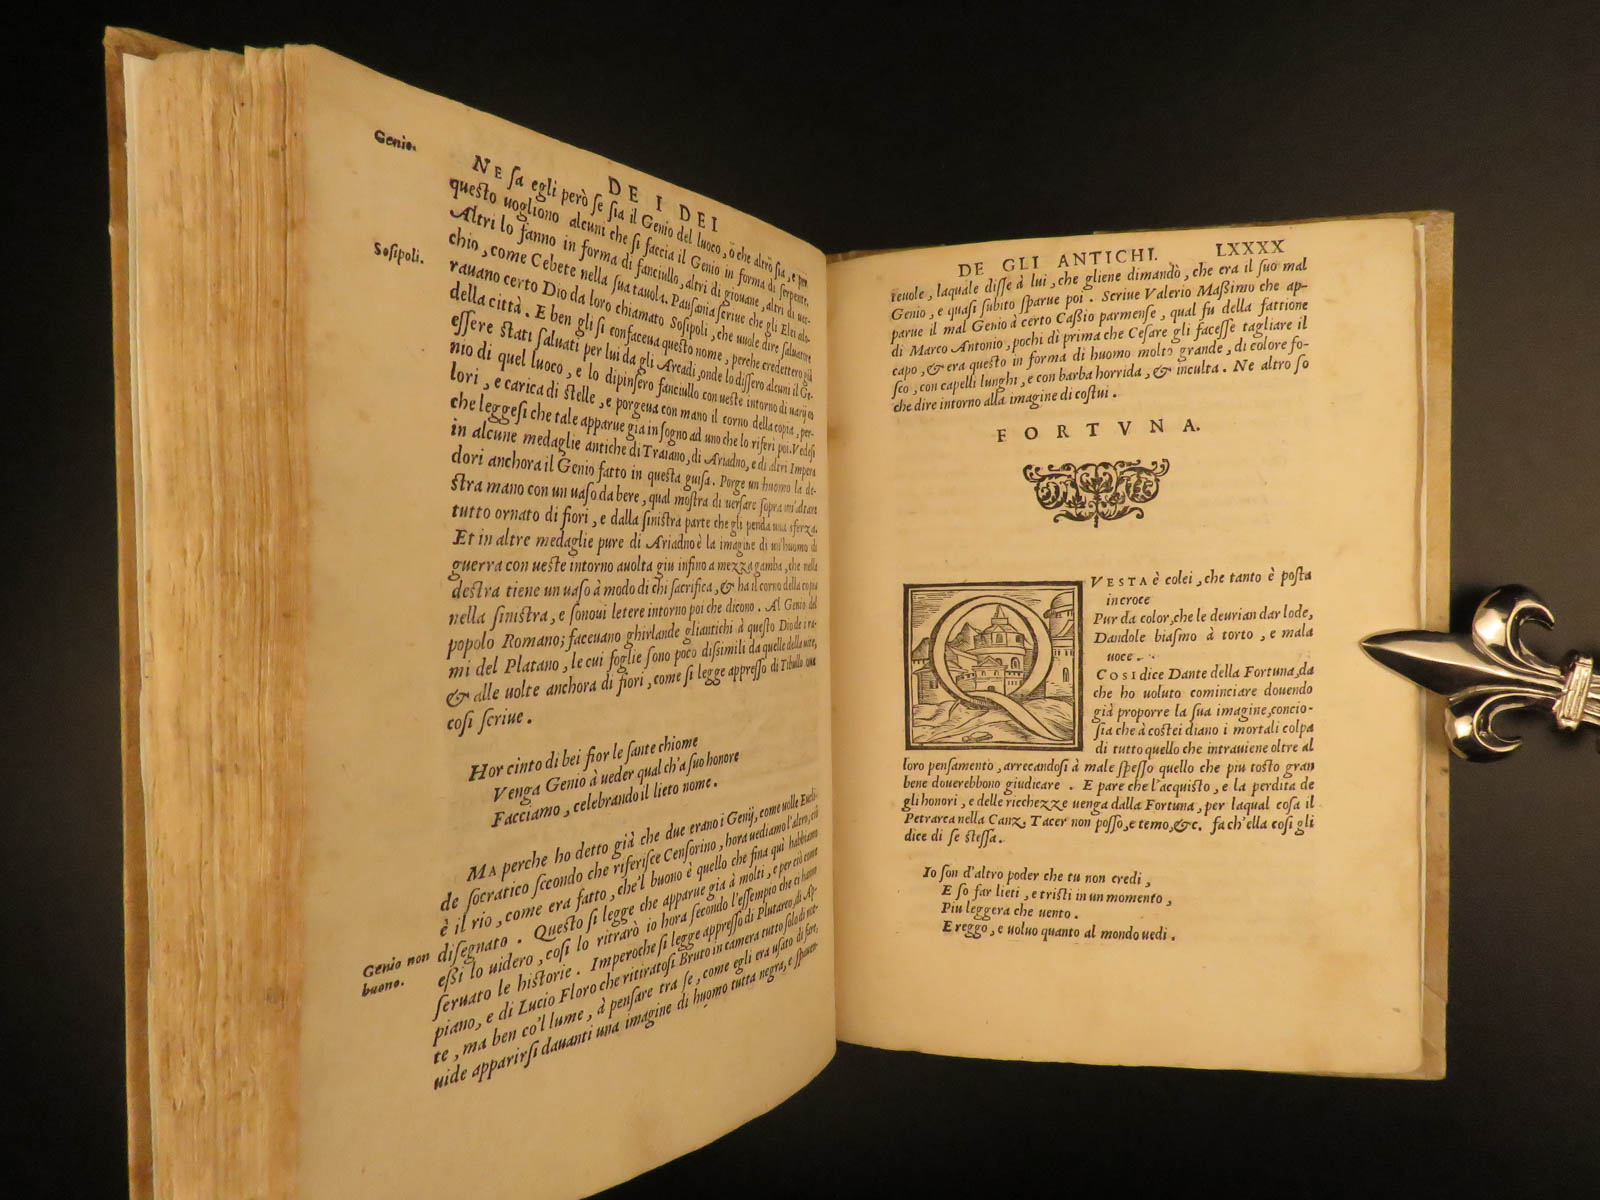 DE I DEI
Genio.
NE sa egli però se sia il Genio del luoco, ò che altro sia, e per
questo uogliono alcuni che si faccia il Genio in forma di serpente.
Altri lo fanno in forma di fanciullo, altri di giouane, altri di uec-
chio, come Cebete nella sua tauola. Pausania scriue che gli Elei ado-
Sosipoli.
rauano certo Dio da loro chiamato Sosipoli, che uuole dire saluatore
della città. E ben gli si confaceua questo nome, perche credettero già
essere stati saluati per lui da gli Arcadi, onde lo dissero alcuni il Ge-
nio di quel luoco, e lo dipinsero fanciullo con ueste intorno di uarij co
lori, e carica di stelle, e porgeua con mano il corno della copia, per-
che leggesi che tale apparue gia in sogno ad uno che lo riferì poi. Vedesi
in alcune medaglie antiche di Traiano, di Ariadno, e di altri Impera
dori anchora il Genio fatto in questa guisa. Porge un huomo la de-
stra mano con un uaso da bere, qual mostra di uersare sopra un'altare
tutto ornato di fiori, e dalla sinistra parte che gli penda una sferza.
Et in altre medaglie pure di Ariadno è la imagine di un'huomo di
guerra con ueste intorno auolta giu infino a mezza gamba, che nella
destra tiene un uaso à modo di chi sacrifica, & ha il corno della copia
nella sinistra, e sonoui letere intorno poi che dicono. Al Genio del
popolo Romano; faceuano ghirlande gliantichi à questo Dio de i ra-
mi del Platano, le cui foglie sono poco dissimili da quelle della uite,
& alle uolte anchora di fiori, come si legge appresso di Tibullo, che
cosi scriue.
Hor cinto di bei fior le sante chiome
Venga Genio à ueder qual ch'a suo honore
Facciamo, celebrando il lieto nome.
MA perche ho detto già che due erano i Genij, come uolle Eucli-
de socratico secondo che riferisce Censorino, hora uediamo l'altro, ciò
è il rio, come era fatto, che'l buono è quello che fina quì habbiamo
disegnato. Questo si legge che apparue gia à molti, e per ciò come
Genio non
buono.
essi lo uidero, così lo ritrarò io hora secondo l'essempio che ci hanno
seruato le historie. Imperoche si legge appresso di Plutarco, di Ap-
piano, e di Lucio Floro che ritiratosi Bruto in camera tutto solo di not-
te, ma ben co'l lume, à pensare tra se, come egli era usato di fare,
uide apparirsi dauanti una imagine di huomo tutta negra, e spauen-
DE GLI ANTICHI. LXXXX
teuole, laquale disse à lui, che gliene dimandò, che era il suo mal
Genio, e quasi subito sparue poi. Scriue Valerio Massimo che ap-
parue il mal Genio à certo Cassio parmense, qual fu della fattione
di Marco Antonio, pochi dì prima che Cesare gli facesse tagliare il
capo, & era questo in forma di huomo molto grande, di colore fo-
sco, con capelli lunghi, e con barba horrida, & inculta. Ne altro so
che dire intorno alla imagine di costui.
FORTVNA.
QVESTA è colei, che tanto è posta
in croce
Pur da color, che le deurian dar lode,
Dandole biasmo à torto, e mala
uoce.
COSI dice Dante della Fortuna, da
che ho uoluto cominciare douendo
già proporre la sua imagine, concio-
sia che à costei diano i mortali colpa
di tutto quello che intrauiene oltre al
loro pensamento, arrecandosi à male spesso quello che piu tosto gran
bene douerebbono giudicare. E pare che l'acquisto, e la perdita de
gli honori, e delle ricchezze uenga dalla Fortuna, per laqual cosa il
Petrarca nella Canz. Tacer non posso, e temo, &c. fa ch'ella cosi gli
dice di se stessa.
Io son d'altro poder che tu non credi,
E so far lieti, e tristi in un momento,
Piu leggera che uento.
E reggo, e uoluo quanto al mondo uedi.